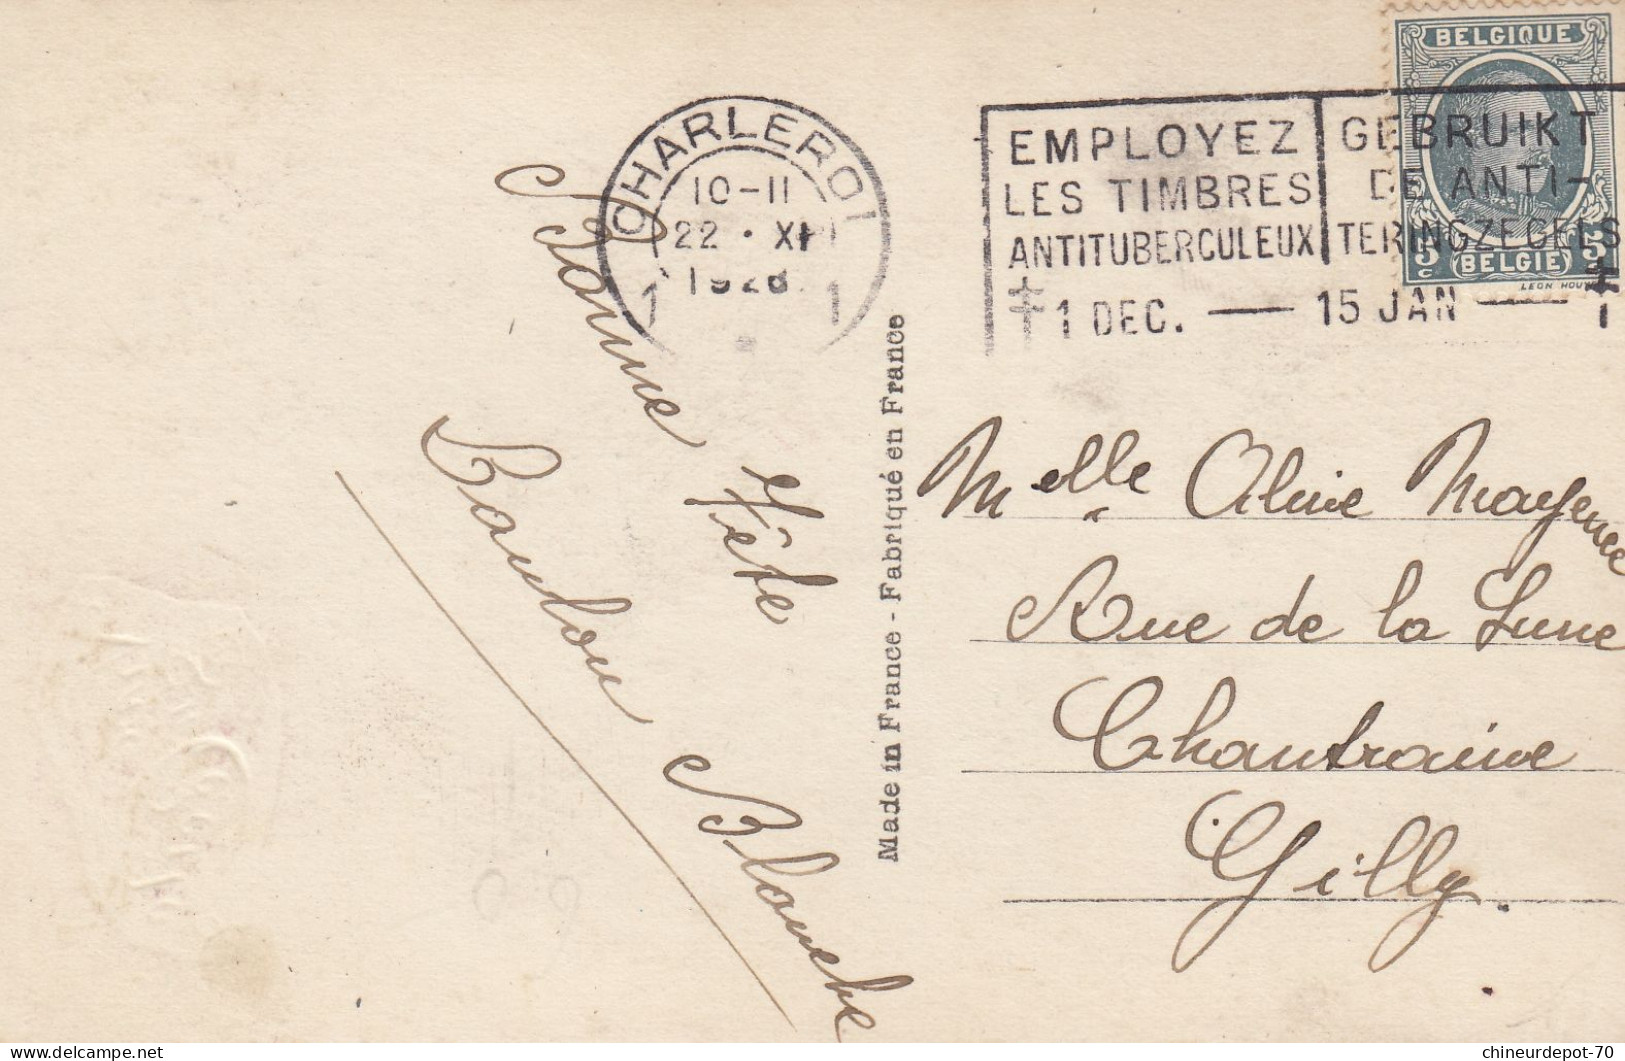 BELGIQUE
5 5
c c
(BELGIE)
LEON HOUY
CHARLEROI
10-11
22 · XI
1928
1 1
EMPLOYEZ
LES TIMBRES
ANTITUBERCULEUX
GEBRUIKT
DE ANTI-
TERINGZEGELS
1 DEC. — 15 JAN —
Bonne Fête
Blanche
Made in France - Fabriqué en France
Melle Aline Mayence
Rue de la Lune
Chantraine
Gilly.
chineurdepot-70